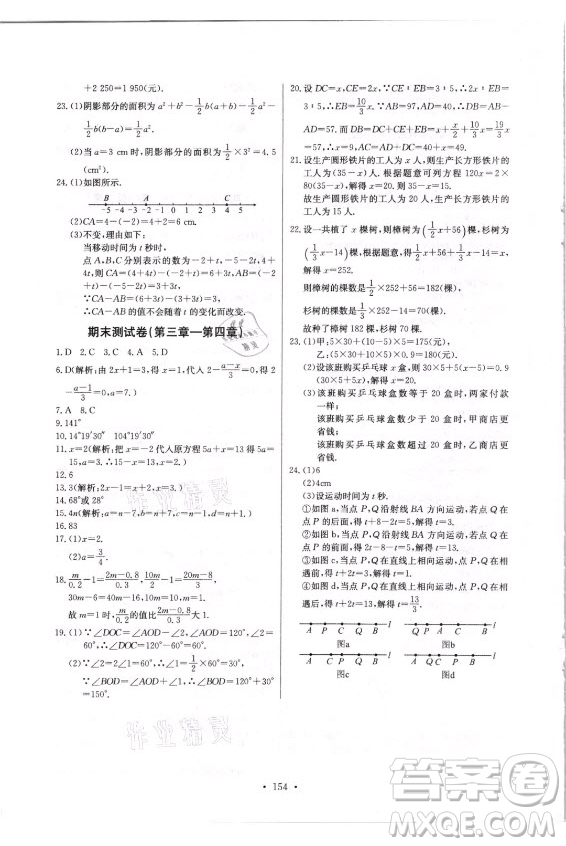 +2 250=1 950(元).
23.(1)阴影部分的面积为a²+b²-½b(a+b)-½a²-
½b(b-a)=½a².
(2)当a=3 cm时,阴影部分的面积为½×3²=4.5
(cm²).
24.(1)如图所示.
B A C
-5 -4 -3 -2 -1 0 1 2 3 4 5
(2)CA=4-(-2)=4+2=6(cm).
(3)不变,理由如下:
当移动时间为t秒时,
点A,B,C分别表示的数为-2+t,-5-2t,4+
4t,则CA=(4+4t)-(-2+t)=6+3t,AB=(-2
+t)-(-5-2t)=3+3t.
∵CA-AB=(6+3t)-(3+3t)=3,
∴CA-AB的值不会随着t的变化而改变.
期末测试卷(第三章—第四章)
1.D 2.C 3.C 4.A 5.D
6.D(解析:由2x+1=3,得x=1,代入2-(a-x)/3=0,得2-
(a-1)/3=0,a=7.)
7.A 8.C
9.141°
10.14°19′30″ 104°19′30″
11.x=2(解析:把x=-2代入原方程5a+x=13得5a=
15,a=3.∴15-x=13.∴x=2.)
12.6
13.3(解析:2x-1=x+2.∴x=3.)
14.68°或28°
15.4n(解析:a=n-7,b=n-1,c=n+1,d=n+7.)
16.83
17.(1)x=2.
(2)a=¾.
18.m/0.2-1=(2m-0.8)/0.3,10m/2-1=(20m-8)/3,
30m-6=40m-16,10m=10,m=1.
故m=1时,m/0.2的值比(2m-0.8)/0.3大1.
19.(1)∵∠DOC=∠AOD-∠AOC=120°,∠2=
60°,∴∠DOC=120°-60°=60°.
(2)∵∠2=2∠1=60°,∴∠1=30°,∠AOD=120°,
∴∠BOD=∠AOD+∠AOB=∠AOD+∠1=120°+30°
=150°.
20.设DC=x,CE=EB=2x,∵CE+EB=3∶5,∴x∶EB=
3∶5,∴EB=10/3x.∵AB=97,AD=40,∴DB=AB-
AD=57.
21.设生产圆形铁片的工人为x人,则生产长方形铁片的
工人为(35-x)人.根据题意可列方程120x=2×
80(35-x),解得x=20.
故生产圆形铁片的工人为20人,生产长方形铁片的
工人为15人.
22.设一共植了x棵树,则樟树为(½x+56)棵,杉树为
(⅓x-14)棵,根据题意,得½x+56+⅓x-14=x.
解得x=252.
则樟树的棵数是½×252+56=182(棵),
杉树的棵数是⅓×252-14=70(棵).
故种了樟树182棵,杉树70棵.
23.(1)甲:5×30+5×(x-5)=5x+125(元),
乙:(5×30+5x)×0.9=4.5x+135(元).
(2)设该班购买乒乓球x盒,则30×5+5(x-5)=0.
9(30×5+5x),解得x=20.
(3)该班购买乒乓球盒数等于20盒时,两家付款
一样;
该班购买乒乓球盒数少于20盒时,甲商店更
省钱;
该班购买乒乓球盒数超过20盒时,乙商店更
省钱.
24.(1)6
(2)4cm
(3)设运动时间为t秒.
①如图a,当点P,Q沿射线BA方向运动,若点Q在
点P的后面,得t+8-2t=5,解得t=3.
②如图b,当点P,Q沿射线BA方向运动,若点Q在
点P的前面,得2t-8-t=5,解得t=13.
③如图c,当点P,Q在直线上相向运动,点P,Q在相
遇前,得t+2t=3,解得t=1.
④如图d,当点P,Q在直线上相向运动,点P,Q在相
遇后,得t+2t=13,解得t=13/3.
A P C Q B l
A C Q P B l
图a 图b
A C P Q B l
A C Q P B l
图c 图d
154
作业精灵
作业精灵
答案圈
MXQE.COM